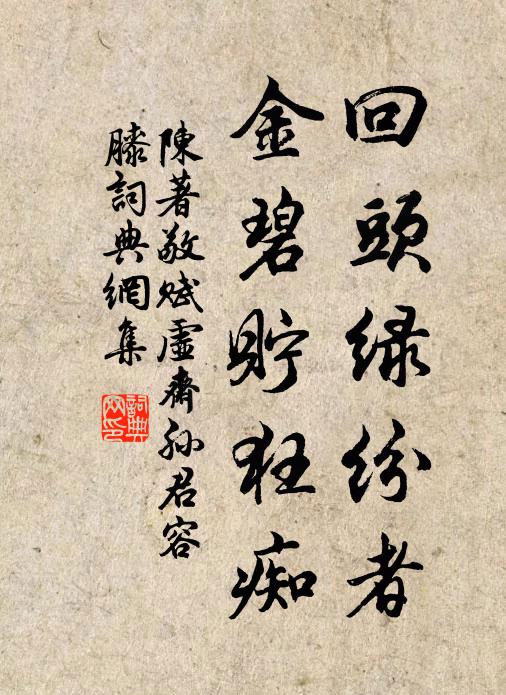 回頭緑紛者
金碧貯狂痴
陳著敬賦虛齋孫君容
滕詞典網集
詞典網印